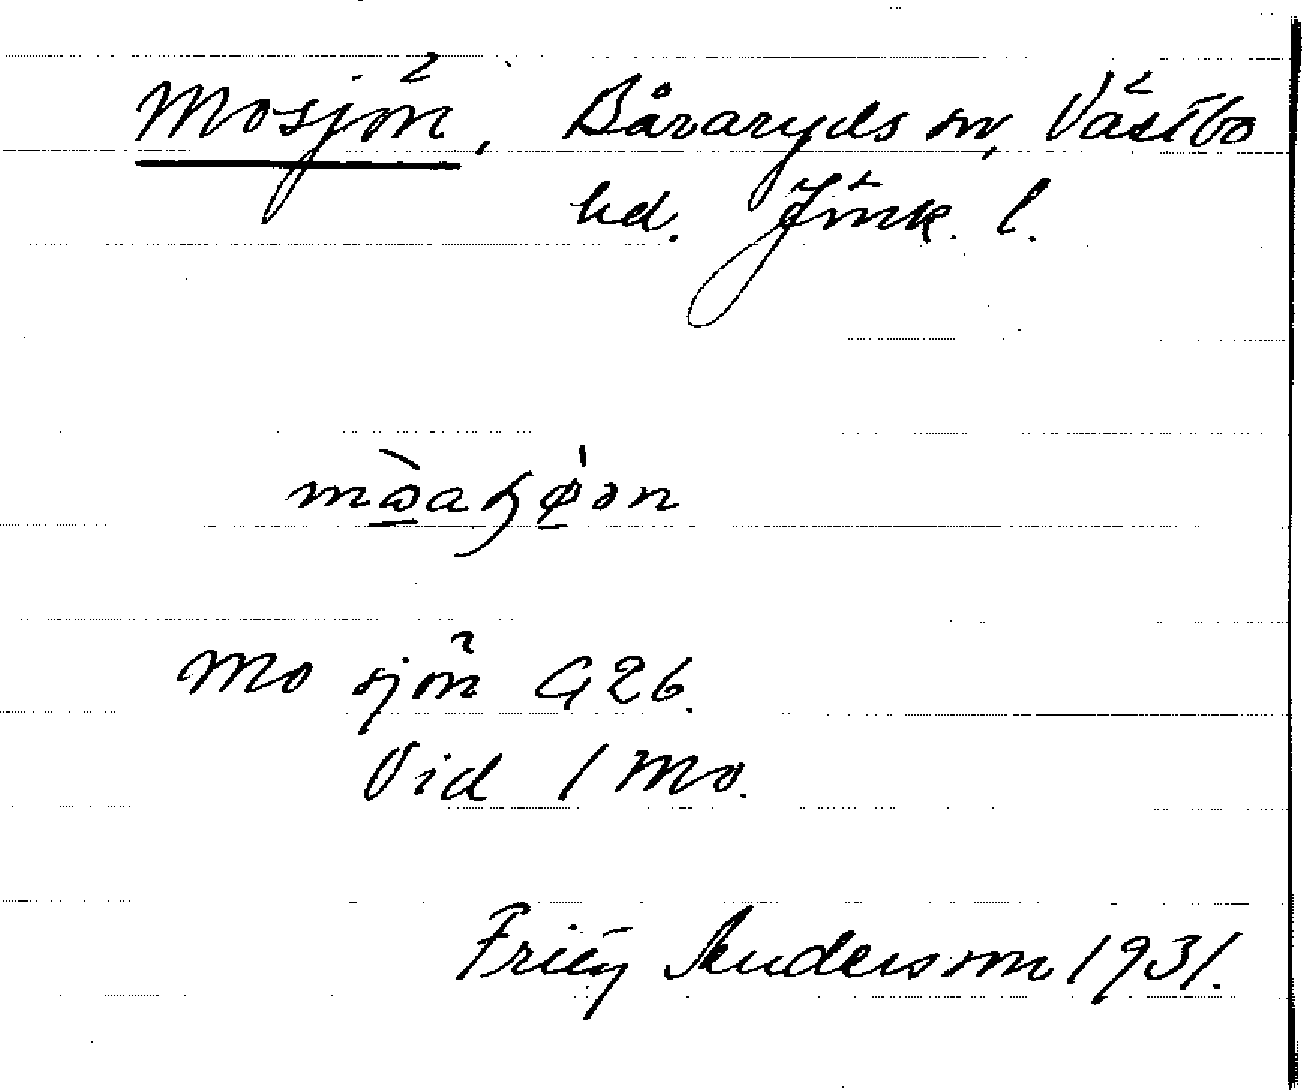 Mosjön, Båraryds sn, Västbo
hd. Jönk. l.
Mo sjön G26.
Vid 1 Mo.
Andersson 1931.